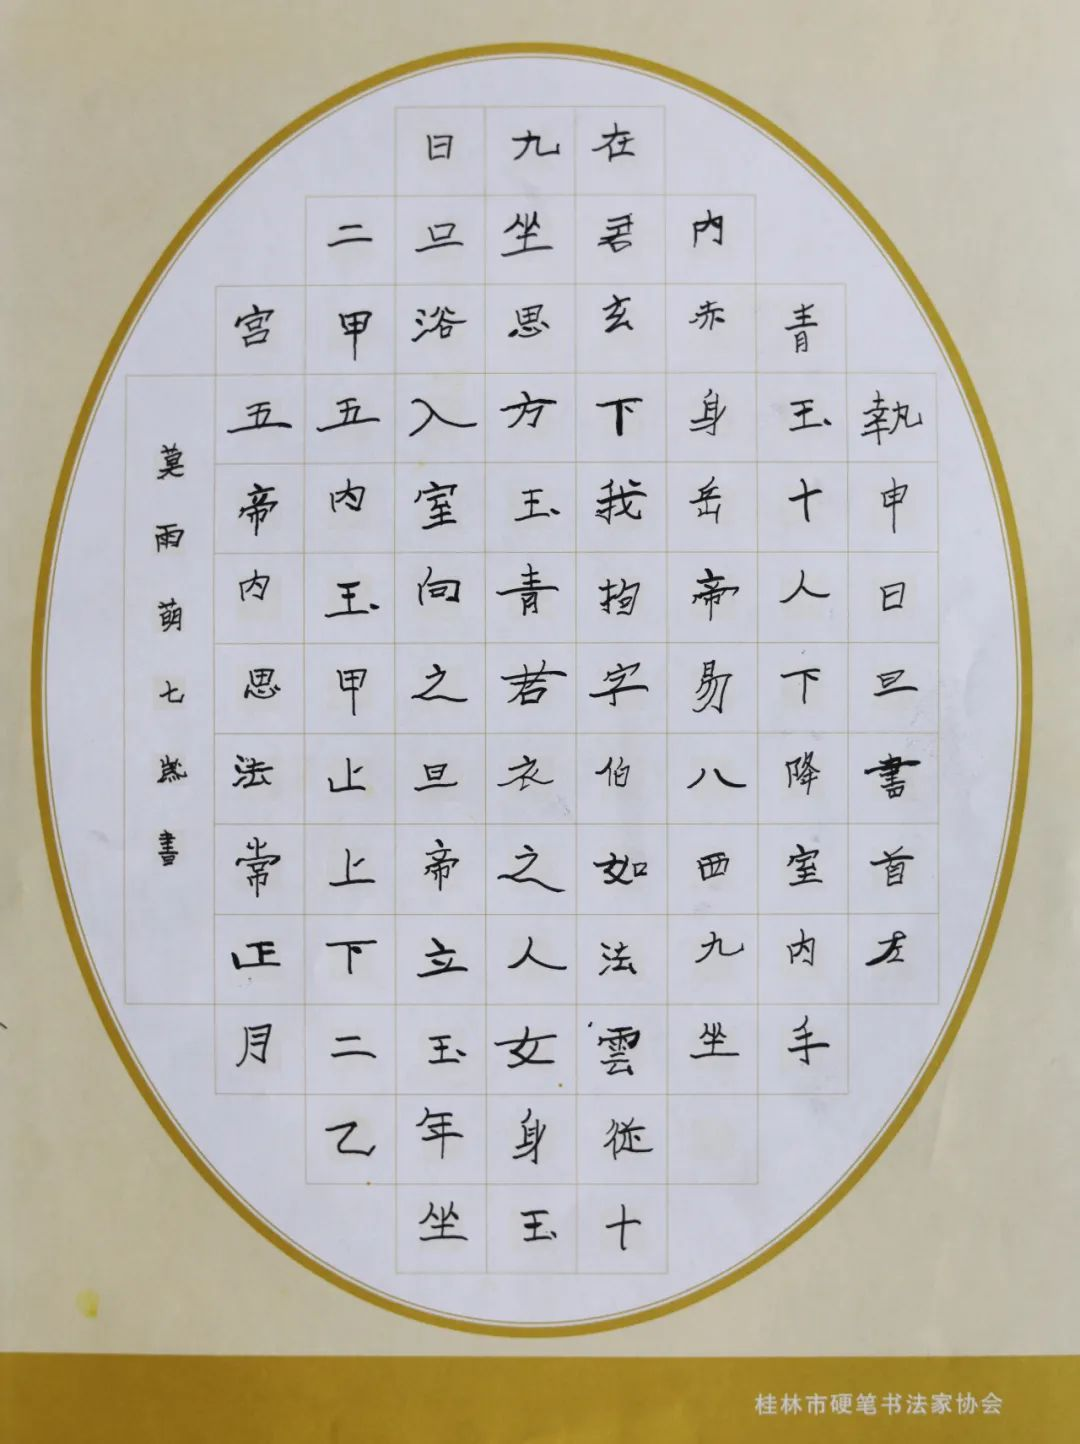 執申日旦書首左
青玉十人下降室内手
内赤身岳帝易八西九坐
在君玄下我抱字伯如法雲從十
九坐思方玉青若衣之人女身玉
日旦浴入室向之旦帝立玉年坐
二甲五内玉甲止上下二乙
宫五帝内思法常正月
莫雨萌七歲書
桂林市硬笔书法家协会